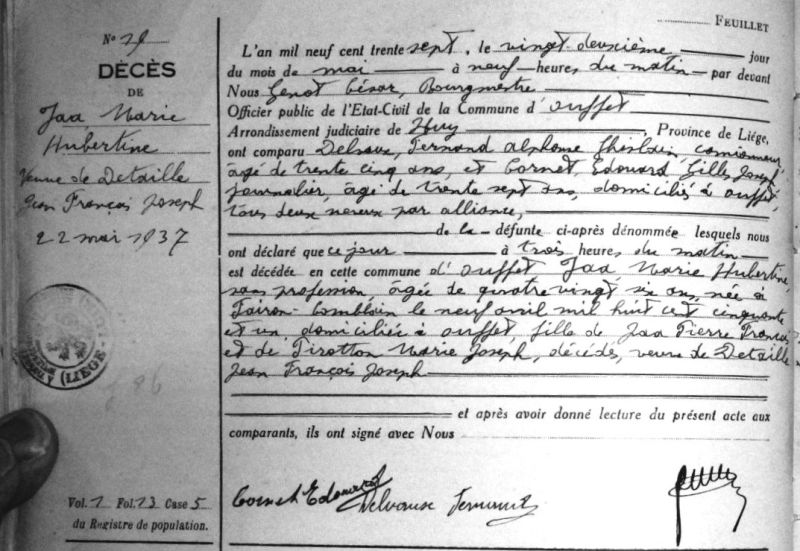 FEUILLET
N° 29
DÉCÈS
DE
Jaa Marie
Hubertine
Veuve de Detaille
Jean François Joseph
22 mai 1937
(LIEGE)
Vol. 1 Fol. 13 Case 5
du Registre de population.
L'an mil neuf cent trente sept, le vingt-deuxième jour
du mois de mai à neuf heures du matin par devant
Nous Genot César, Bourgmestre
Officier public de l'Etat-Civil de la Commune d'Ouffet
Arrondissement judiciaire de Huy, Province de Liége,
ont comparu Delvaux, Fernand Alphonse Ghislain, camionneur,
âgé de trente cinq ans, et Cornet, Edouard Gilles Joseph
journalier, âgé de trente sept ans, domiciliés à Ouffet,
tous deux neveux par alliance,
de la défunte ci-après dénommée lesquels nous
ont déclaré que ce jour à trois heures du matin
est décédée en cette commune d'Ouffet Jaa, Marie Hubertine,
sans profession, âgée de quatre vingt six ans, née à
Comblain le neuf avril mil huit cent cinquante
et un, domiciliée à Ouffet, fille de Jaa Pierre François
et de Pirotton Marie Joseph, décédés, veuve de Detaille
Jean François Joseph
et après avoir donné lecture du présent acte aux
comparants, ils ont signé avec Nous
Cornet Edouard
Delvaux Fernand